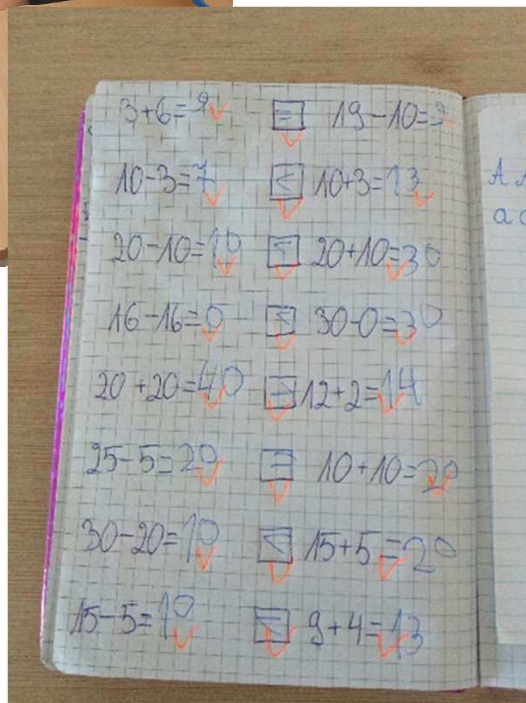 3+6=9 = 19-10=9
10-3=7 < 10+3=13
20-10=10 < 20+10=30
16-16=0 < 30-0=30
20+20=40 > 12+2=14
25-5=20 = 10+10=20
30-20=10 < 15+5=20
15-5=10 < 9+4=13